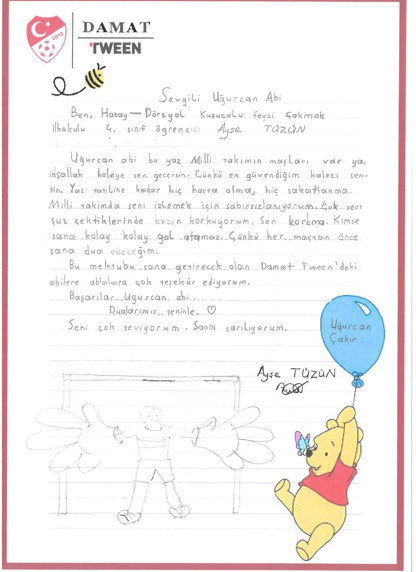 1923
DAMAT
TWEEN
Sevgili Uğurcan Abi
Ben, Hatay-Dörtyol Kuzuculu Fevzi Çakmak
ilkokulu 4. sınıf öğrencisi Ayşe TÜZÜN
Uğurcan abi bu yaz Milli takımın maçları var ya.
inşallah kaleye sen geçersin. Çünkü en güvendiğim kaleci sen-
sin. Yaz tatiline kadar hiç hasta olma, hiç sakatlanma.
Milli takımda seni izlemek için sabırsızlanıyorum. Çok sert
şut çektiklerinde bazen korkuyorum. Sen korkma. Kimse
sana kolay kolay gol atamaz. Çünkü her maçtan önce
sana dua edeceğim.
Bu mektubu sana getirecek olan Damat Tween'deki
abilere ablalara çok teşekür ediyorum.
Başarılar Uğurcan abi..
Dualarımız seninle. ♡
Seni çok seviyorum. Sana sarılıyorum.
Uğurcan
Çakır
Ayşe TÜZÜN